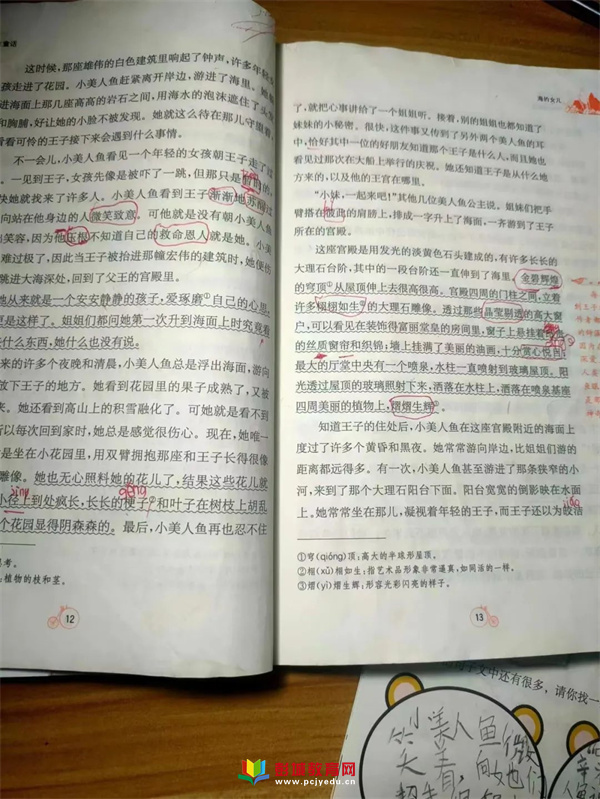 童话
这时候,那座雄伟的白色建筑里响起了钟声,许多年轻
孩走进了花园。小美人鱼赶紧离开岸边,游进了海里。她
进海面上那几座高高的岩石之间,用海水的泡沫遮住了头
和胸脯,好让她的小脸不被发现。她就这么待在那儿守望着,
看看可怜的王子接下来会遇到什么事情。
不一会儿,小美人鱼看见一个年轻的女孩朝王子走了过
。一见到王子,女孩先像是被吓了一跳,但那只是
快她就找来了许多人。小美人鱼看到王子渐渐地苏醒过
向站在他身边的人微笑致意。可他就是没有朝小美人鱼
出笑容,因为他压根不知道自己的救命恩人就是她。小美
难过极了,因此当王子被抬进那幢宏伟的建筑时,她便伤
跳进大海深处,回到了父王的宫殿里。
她从来就是一个安安静静的孩子,爱琢磨①自己的心思,
更是这样了。姐姐们都问她第一次升到海面上时究竟看
什么东西,她什么也没有说。
来的许多个夜晚和清晨,小美人鱼总是浮出海面,游向
放下王子的地方。她看到花园里的果子成熟了,又被
来。她还看到高山上的积雪融化了。可她就是看不到
所以每次回到家时,她总是感觉很伤心。现在,她唯一
是坐在小花园里,用双臂拥抱那座和王子长得很像
雕像。她也无心照料她的花儿了,结果这些花儿就
jìng
gěng
小径上到处疯长,长长的梗子②和叶子在树枝上胡乱
个花园显得阴森森的。最后,小美人鱼再也忍不住
思考。
:植物的枝和茎。
12
海的女儿
了,就把心事讲给了一个姐姐听。接着,别的姐姐也都知道了
妹妹的小秘密。很快,这件事又传到了另外两个美人鱼的耳
中,恰好其中一位的好朋友知道那个王子是什么人,而且她也
看见过那次在大船上举行的庆祝。她还知道王子是从什么地
方来的,以及他的王宫在哪里。
“小妹,一起来吧!”其他几位美人鱼公主说。姐妹们把手
臂搭在彼此的肩膀上,排成一字升上了海面,一齐游到了王子
所在的宫殿。
这座宫殿是用发光的淡黄色石头建成的,有许多长长的
大理石台阶,其中的一段台阶还一直伸到了海里。金碧辉煌
的穹顶①从屋顶伸上去很高很高。宫殿四周的门柱之间,立着
许多栩栩如生②的大理石雕像。透过那些晶莹剔透的高大窗
户,可以看见在装饰得富丽堂皇的房间里,窗子上是挂着
的丝质窗帘和织锦;墙上挂满了美丽的油画,十分赏心悦目。
最大的厅堂中央有一个喷泉,水柱一直喷射到玻璃屋顶。阳
光透过屋顶的玻璃照射下来,洒落在水柱上,洒落在喷泉基座
四周美丽的植物上,熠熠生辉③。
知道王子的住处后,小美人鱼在这座宫殿附近的海面上
度过了许多个黄昏和黑夜。她常常游向岸边,比姐姐们游的
距离都远得多。有一次,小美人鱼甚至游进了那条狭窄的小
河,来到了那个大理石阳台下面。阳台宽宽的倒影映在水面
上。她常常坐在那儿,凝视着年轻的王子,而王子还以为皎洁
①穹(qióng)顶:高大的半球形屋顶。
②栩(xǔ)栩如生:指艺术品形象非常逼真,如同活的一样。
③熠(yì)熠生辉:形容光彩闪亮的样子。
13
子文中还有很多,请你找一
美人鱼微
笑着,向她
教育网
www.pcjyedu.cn